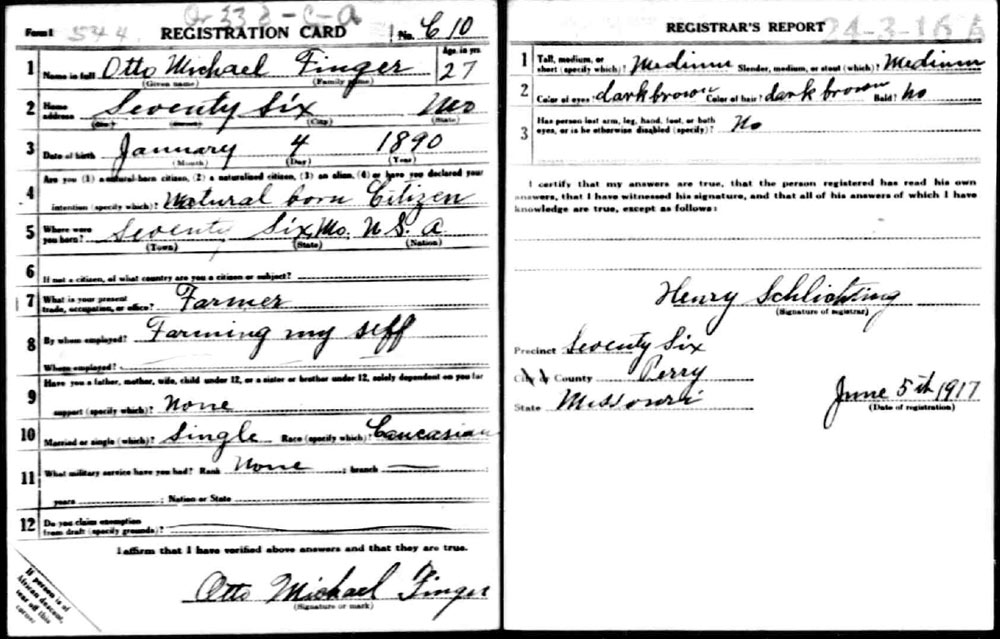 Form 1 544 REGISTRATION CARD No. 610
1 Name in full Otto Michael Finger Age, in yrs. 27
(Given name) (Family name)
2 Home address Seventy Six Mo
(No.) (Street) (City) (State)
3 Date of birth January 4 1890
(Month) (Day) (Year)
4 Are you (1) a natural-born citizen, (2) a naturalized citizen, (3) an alien, (4) or have you declared your
intention (specify which)? Natural born Citizen
5 Where were you born? Seventy Six, Mo. U S. A
(Town) (State) (Nation)
6 If not a citizen, of what country are you a citizen or subject?
7 What is your present trade, occupation, or office? Farmer
8 By whom employed? Farming my self
Where employed?
9 Have you a father, mother, wife, child under 12, or a sister or brother under 12, solely dependent on you for
support (specify which)? None
10 Married or single (which)? Single Race (specify which)? Caucasian
11 What military service have you had? Rank None ; branch —
years ; Nation or State
12 Do you claim exemption from draft (specify grounds)?
I affirm that I have verified above answers and that they are true.
Otto Michael Finger
(Signature or mark)
If person is of
African descent,
tear off this
corner
REGISTRAR'S REPORT 24-3-16 A
1 Tall, medium, or short (specify which)? Medium Slender, medium, or stout (which)? Medium
2 Color of eyes? dark brown Color of hair? dark brown Bald? No
3 Has person lost arm, leg, hand, foot, or both
eyes, or is he otherwise disabled (specify)? No
I certify that my answers are true, that the person registered has read his own
answers, that I have witnessed his signature, and that all of his answers of which I have
knowledge are true, except as follows:
Henry Schlichting
(Signature of registrar)
Precinct Seventy Six
City or County Perry
State Missouri June 5th 1917
(Date of registration)